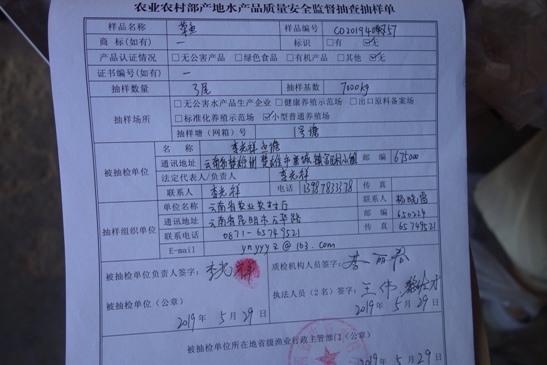 农业农村部产地水产品质量安全监督抽查抽样单
样品名称 草鱼 样品编号
商 标(如有) — 标识 □有 ☑无
产品认证情况 □无公害产品 □绿色食品 □有机产品 □其他 ☑无
证书编号(如有) —
抽样数量 3尾 抽样基数 7000kg
抽样场所 □无公害水产品生产企业 □健康养殖示范场 □出口原料备案场
□标准化养殖示范场 ☑小型普通养殖场
抽样塘(网箱)号 1号塘
被抽检单位 名 称 李光祥鱼塘
通讯地址 云南省楚雄州楚雄市 邮 编 675000
法定代表人/负责人 李光祥
联系人 李光祥 电话 13987833378 传 真
抽样组织单位 单位名称 云南省农业农村厅 联系人
通讯地址 云南省昆明市 邮 编 650224
联系电话 0871-65749521 传 真 65749521
E-mail ynyyyz@163.com
被抽检单位负责人签字: 李光祥 质检机构人员签字:
执法人员(2名)签字: 王伟
被抽检单位(公章)
2019年 5月29日 2019年 5月29日
被抽检单位所在地省级渔业行政主管部门(公章)
2019年 5月29